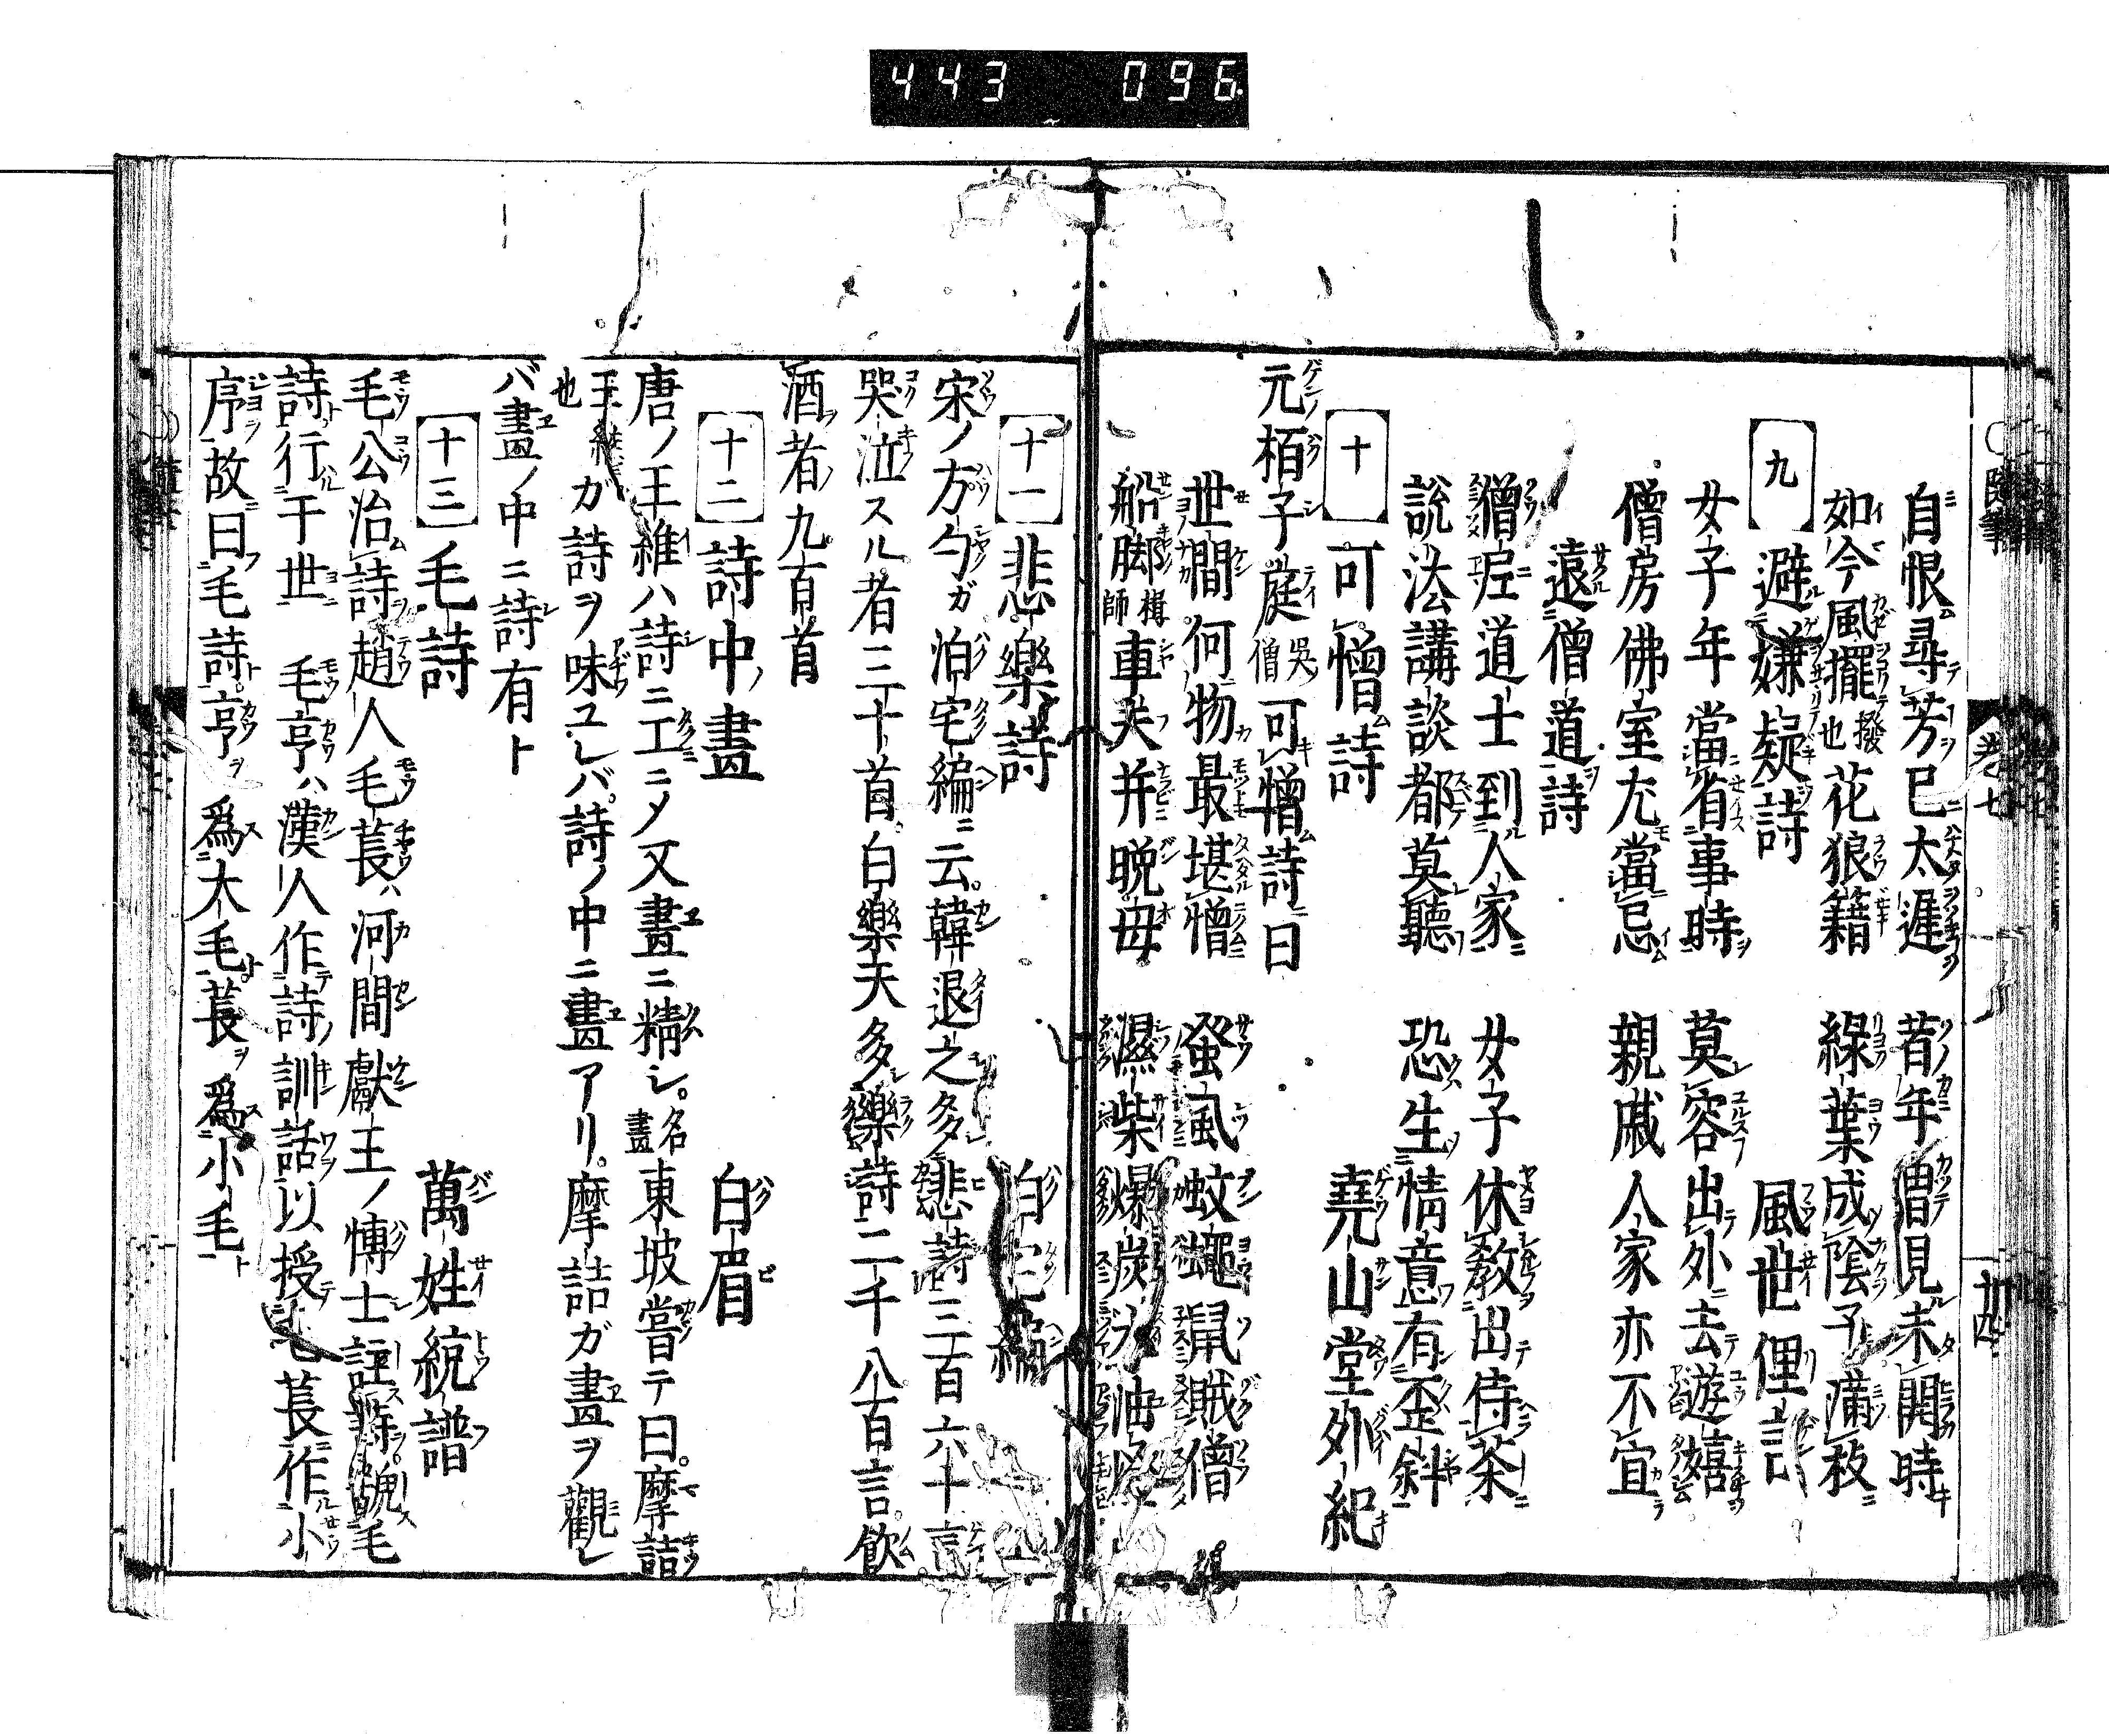 443 096
自恨尋芳已太遲 昔年曽見未開時
如今風擺撥也花狼籍 綠葉成陰子滿枝
九 避嫌疑詩 風世俚言
女子年當省事時 莫容出外去遊嬉
僧房佛室尤當忌 親戚人家亦不宜
遠僧道詩
僧尼道士到人家 女子休教出侍茶
說法講談都莫聽 恐生情意有歪斜
十 可憎詩 堯山堂外紀
元栢子庭吳僧可憎詩曰
世間何物最堪憎 蚤虱蚊蠅鼠賊僧
船脚梢師車夫并晚母 濕柴爆炭
十一 悲樂詩 泊宅編
宋ノ方勺ガ泊宅編ニ云韓退之多悲詩三百六十言
哭泣スル者三十首白樂天多樂詩二千八百言飲
酒者九百首
十二 詩中畫 白眉
唐ノ王維ハ詩ニ工ニメ又畫ニ精シ名畫東坡嘗テ曰摩詰
王維也ガ詩ヲ味ユレバ詩ノ中ニ畫アリ摩詰ガ畫ヲ觀レ
バ畫ノ中ニ詩有ト
十三 毛詩 萬姓統譜
毛公治詩趙人毛萇ハ河間獻王ノ博士詩號毛
詩行于世 毛亨ハ漢人作詩訓話以授毛萇作小
序故曰毛詩亨ヲ爲大毛萇ヲ爲小毛ト
卷七 廿四